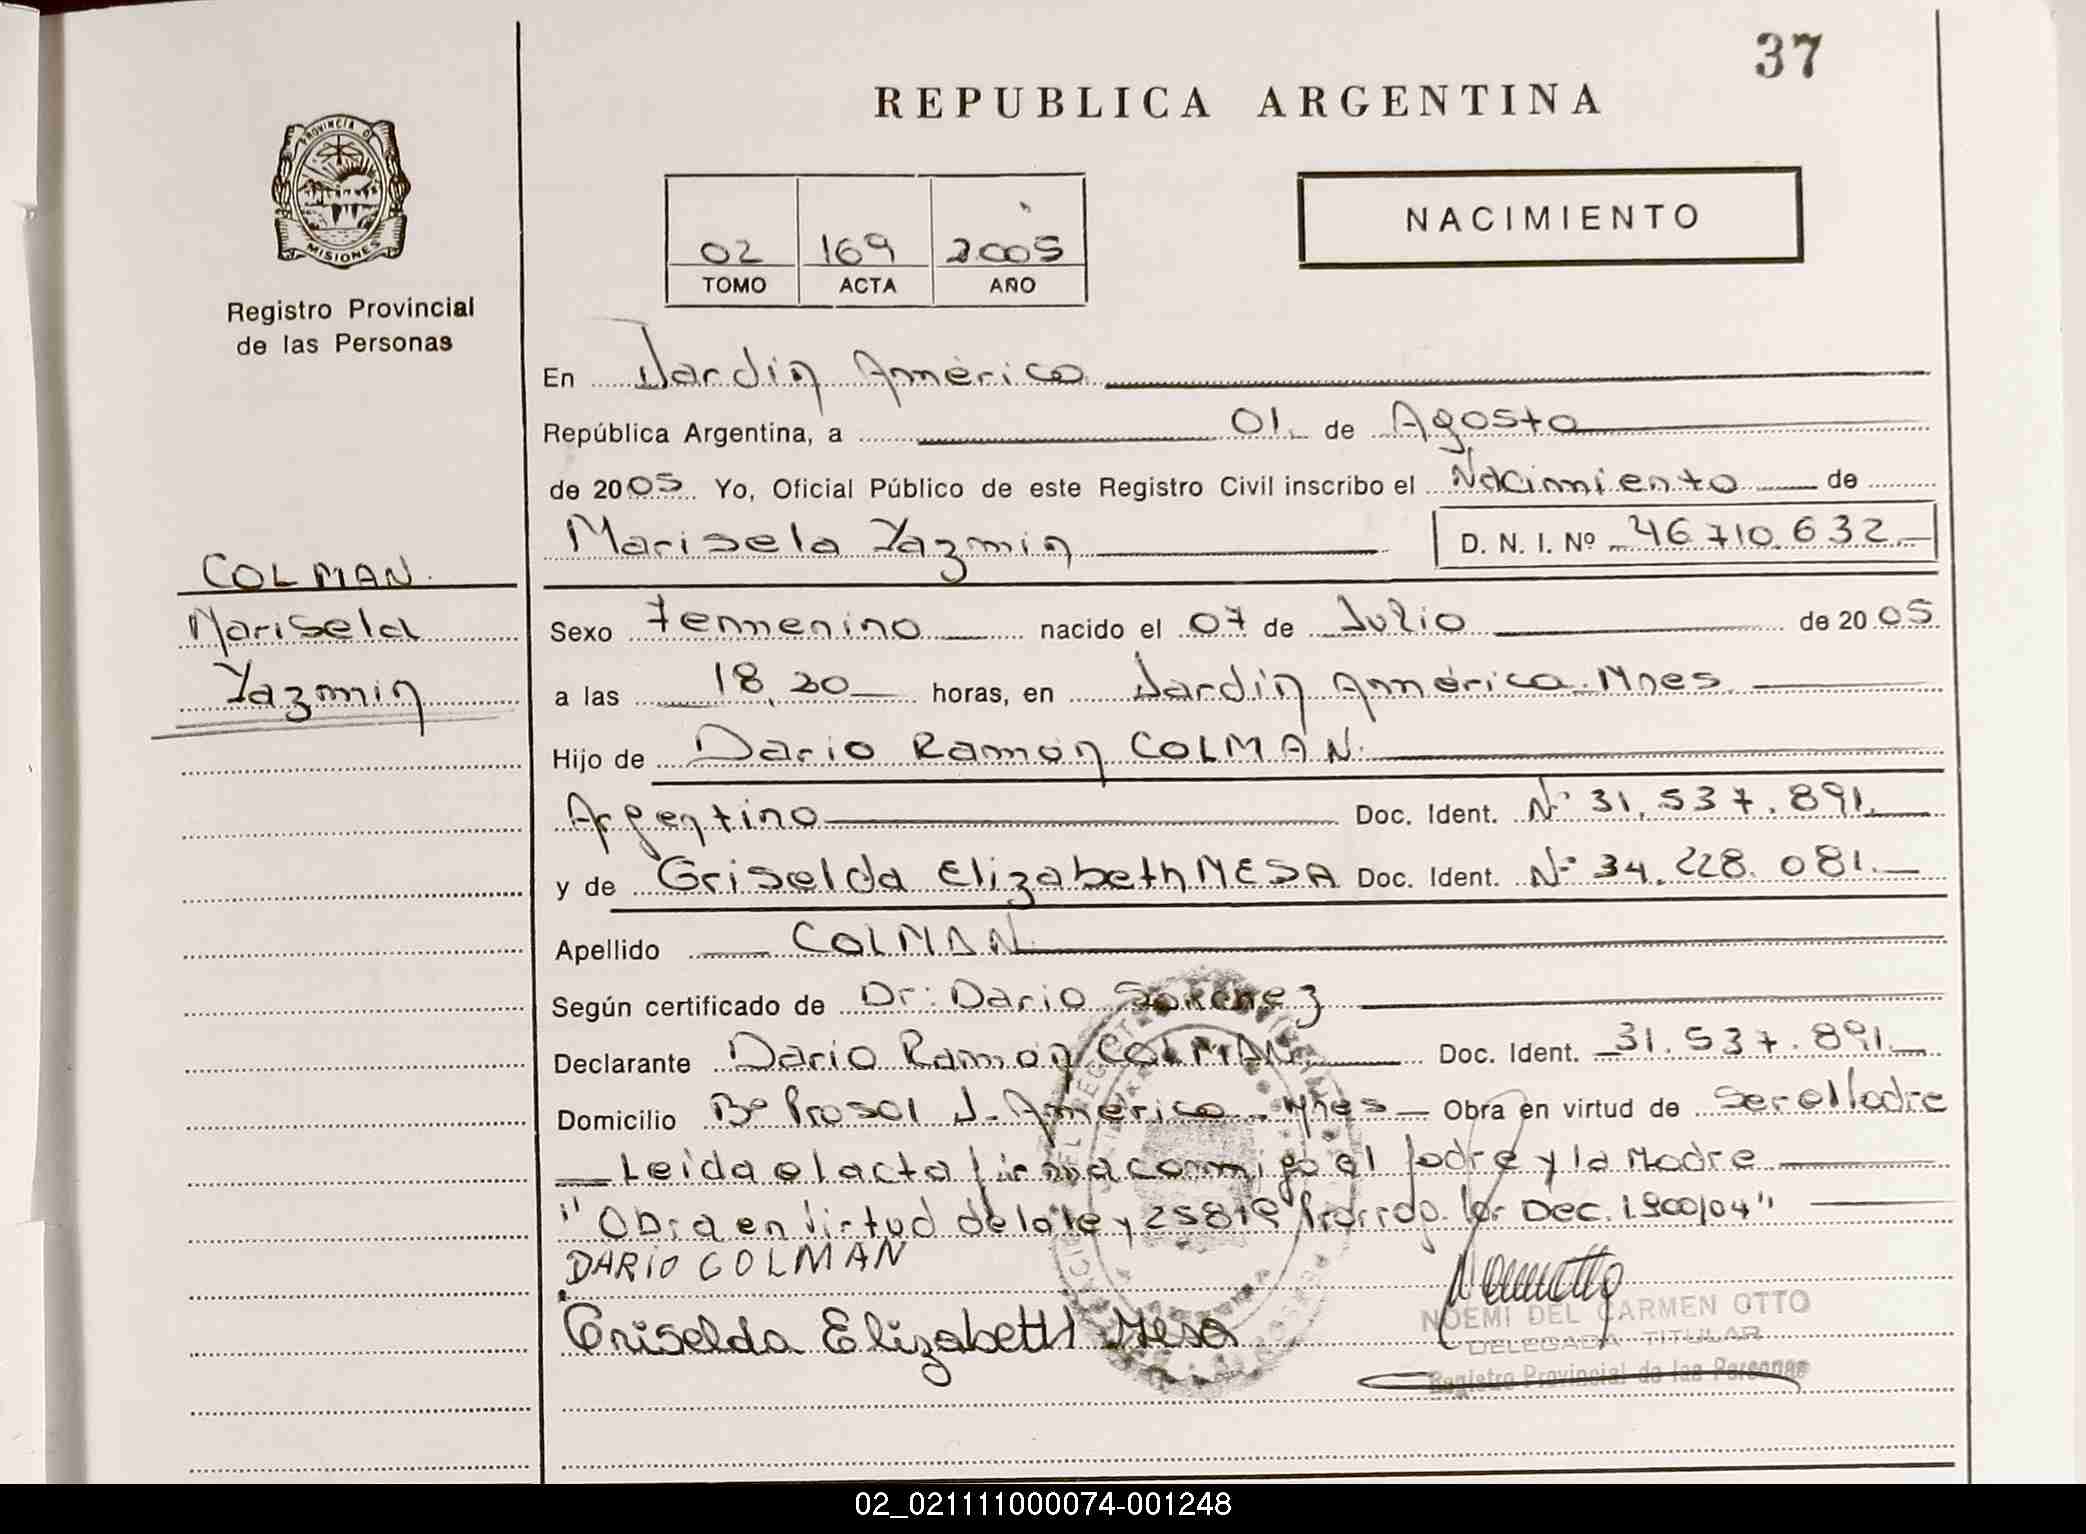 37
REPUBLICA ARGENTINA
PROVINCIA DE
MISIONES
NACIMIENTO
02 169 2005
TOMO ACTA AÑO
Registro Provincial
de las Personas
En Jardin América
República Argentina, a 01 de Agosto
de 2005 Yo, Oficial Público de este Registro Civil inscribo el Nacimiento de
Marisela Yazmin D. N. I. Nº 46.710.632
COLMAN
Marisela
Yazmin
Sexo Femenino nacido el 07 de Julio de 2005
a las 18,20 horas, en Jardin América. Mnes
Hijo de Dario Ramón COLMAN
Argentino Doc. Ident. Nº 31.537.891
y de Griselda Elizabeth MESA Doc. Ident. Nº 34.228.081
Apellido COLMAN
Según certificado de Dr: Dario Sanchez
Declarante Dario Ramon COLMAN Doc. Ident. 31.537.891
Domicilio Bº Prosol J. América. Mnes Obra en virtud de ser el Padre
Leida el acta firma conmigo el Padre y la Madre
"Obra en virtud de la ley 25819 Prorrog. Por Dec. 1.900/04"
DARIO COLMAN
Griselda Elizabeth Mesa
NOEMI DEL CARMEN OTTO
DELEGADA TITULAR
Registro Provincial de las Personas
02_021111000074-001248